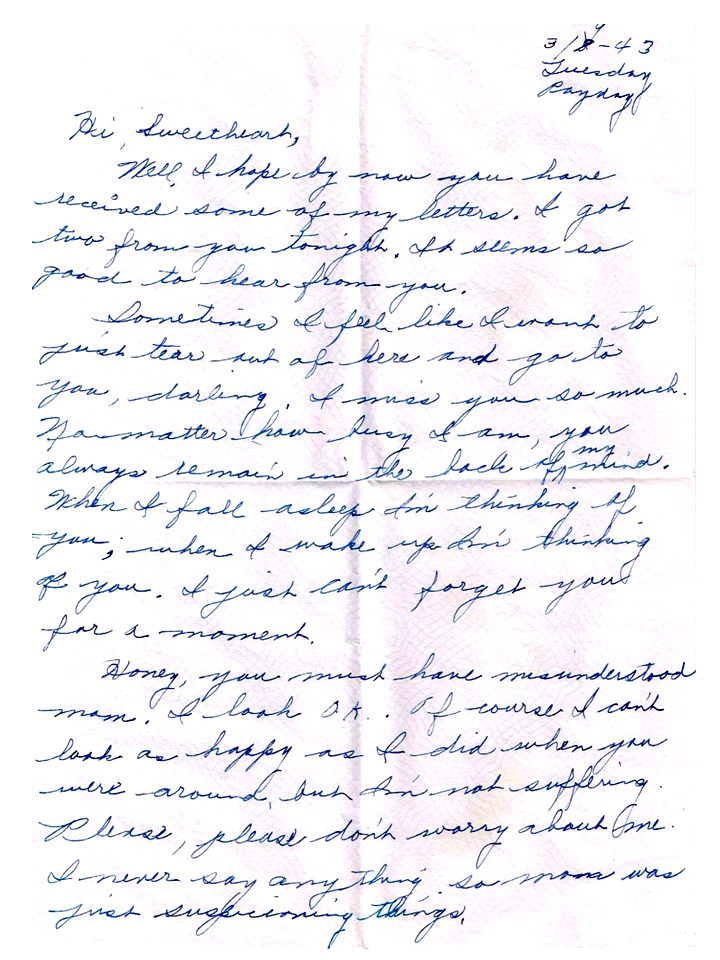 3/9-43
Tuesday
Payday
Hi, Sweetheart,
Well, I hope by now you have
received some of my letters. I got
two from you tonight. It seems so
good to hear from you.
Sometimes I feel like I want to
just tear out of here and go to
you, darling. I miss you so much.
No matter how busy I am, you
always remain in the back of my mind.
When I fall asleep I'm thinking of
you; when I wake up I'm thinking
of you. I just can't forget you
for a moment.
Honey, you must have misunderstood
mom. I look O.K.. Of course I can't
look as happy as I did when you
were around, but I'm not suffering.
Please, please don't worry about me.
I never say anything, so mom was
just suspicioning things.